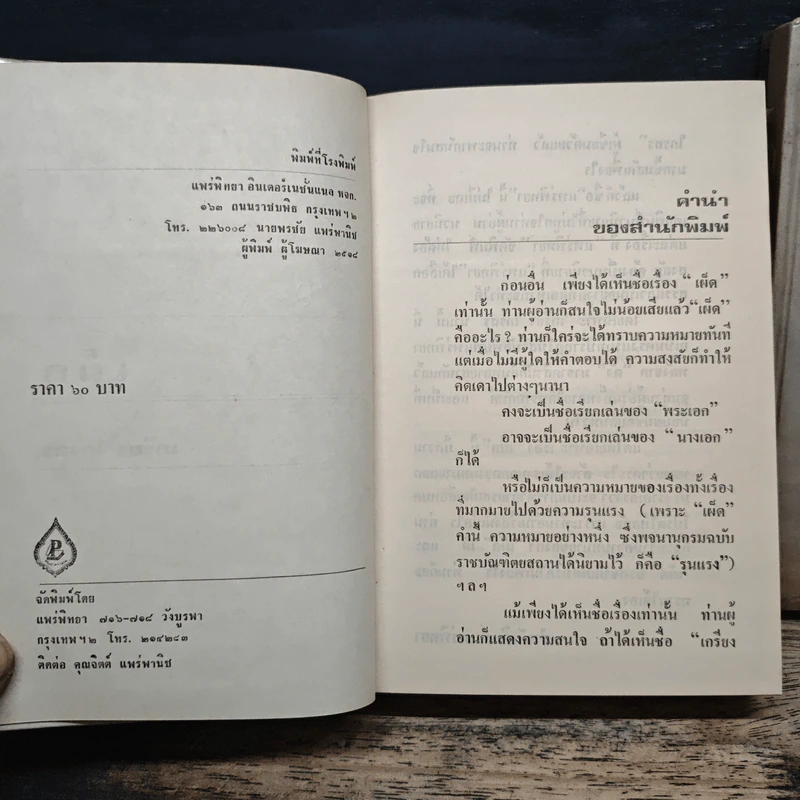 พิมพ์ที่โรงพิมพ์
แพร่พิทยา อินเตอร์เนชั่นแนล หจก.
๑๖๓ ถนนราชบพิธ กรุงเทพฯ ๒
โทร. ๒๒๖๐๐๘ นายพรชัย แพร่พานิช
ผู้พิมพ์ ผู้โฆษณา ๒๕๑๘
ราคา ๖๐ บาท
จัดพิมพ์โดย
แพร่พิทยา ๗๑๖-๗๑๘ วังบูรพา
กรุงเทพฯ ๒ โทร. ๒๑๔๒๘๓
ติดต่อ คุณจิตต์ แพร่พานิช
คำนำ
ของสำนักพิมพ์
ก่อนอื่น เพียงได้เห็นชื่อเรื่อง “เผ็ด”
เท่านั้น ท่านผู้อ่านก็สนใจไม่น้อยเสียแล้ว “เผ็ด”
คืออะไร ? ท่านก็ใคร่จะได้ทราบความหมายทันที
แต่เมื่อไม่มีผู้ใดให้คำตอบได้ ความสงสัยก็ทำให้
คิดเดาไปต่างๆนานา
คงจะเป็นชื่อเรียกเล่นของ “พระเอก”
อาจจะเป็นชื่อเรียกเล่นของ “นางเอก”
ก็ได้
หรือไม่ก็เป็นความหมายของเรื่องทั้งเรื่อง
ที่มากมายไปด้วยความรุนแรง (เพราะ “เผ็ด”
คำนี้ ความหมายอย่างหนึ่ง ซึ่งพจนานุกรมฉบับ
ราชบัณฑิตยสถานได้นิยามไว้ ก็คือ “รุนแรง”)
ฯลฯ
แม้เพียงได้เห็นชื่อเรื่องเท่านั้น ท่านผู้
อ่านก็แสดงความสนใจ ถ้าได้เห็นชื่อ “เกรียง